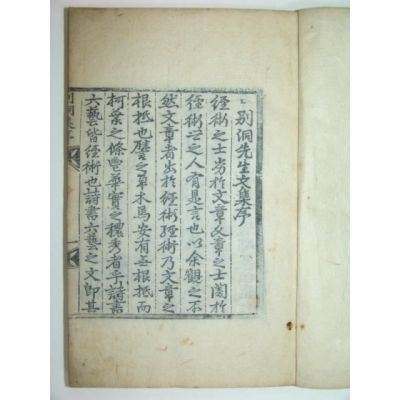 別洞先生文集序
經術之士劣於文章文章之士闇於
經術世之人有是言也以余觀之不
然文章者出於經術經術乃文章之
根柢也譬之草木焉安有無根柢而
柯葉之條鬯華實之穠秀者乎詩書
六藝皆經術也詩書六藝之文即其